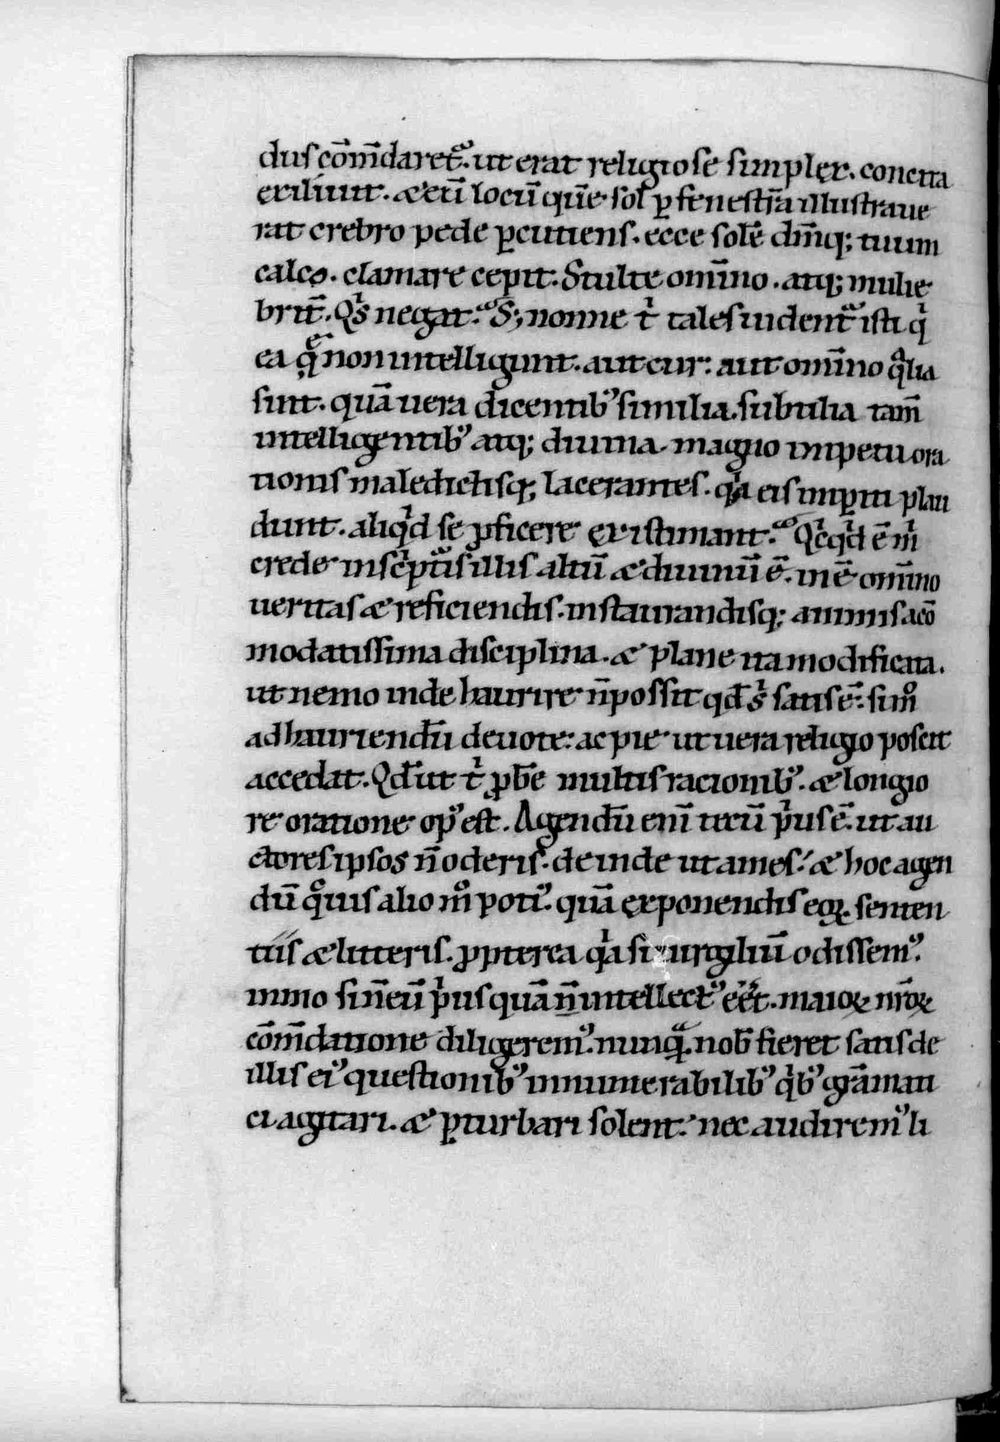 dus cōm̄daret᷒. ut erat religiose simplex. concita
exiliuit. & etī locū quē sol ꝑ fenestrā illustraue
rat crebro pede ꝑcutiens. ecce solē dn̄iq; tuum
calco. clamare cepit. Stulte omīno. atq; mulie
brit̄. Qͥs negat. S; nonne tͥ tales uident᷒ isti qͥ
ea q̨ non intelligunt. aut cur: aut omīno qͣlia
sint. quā uera dicentib᾽ similia. subtilia tam̄
intelligentib᾽ atq; diuina. magno impetu ora
tionis maledictisq; lacerantes. qͥa eis imꝑiti plau
dunt. aliqͥd se ꝓficere existimant. Qͥcqͥd ē mͥ
crede inscͥpt᷒is illis altū & diuinū ē. inē omīno
ueritas & reficiendis. instaurandisq; animis acō
modatissima disciplina. & plane ita modificata.
ut nemo inde haurire n̄ possit qd̄ sͥ satis ē. si mͦ
ad hauriendū deuote: ac pie ut uera religio poscit
accedat. Qd̄ ut tͥ ꝓbē multis racionib᾽. & longio
re oratione op᾽ est. Agendū enī tecū pͥus ē. ut au
ctores ipsos n̄ oderis. deinde ut ames. & hoc agen
dū qͦuis alio mͦ poti᾽. quā exponendis eoꝝ senten
tiis & litteris. ꝓpterea qͥa si uirgiliū odissem᾽
immo si n̄ eū pͥus quā n̄ intellect᾽ eēt. maioꝝ nr̄oꝝ
cōm̄datione diligerem᾽. nunqͣ. nob̄ fieret satis de
illis ei᾽ questionib᾽ innumerabilib᾽ qͥb᾽ grāmati
ci agitari. & ꝑturbari solent. nec audirem᾽ li